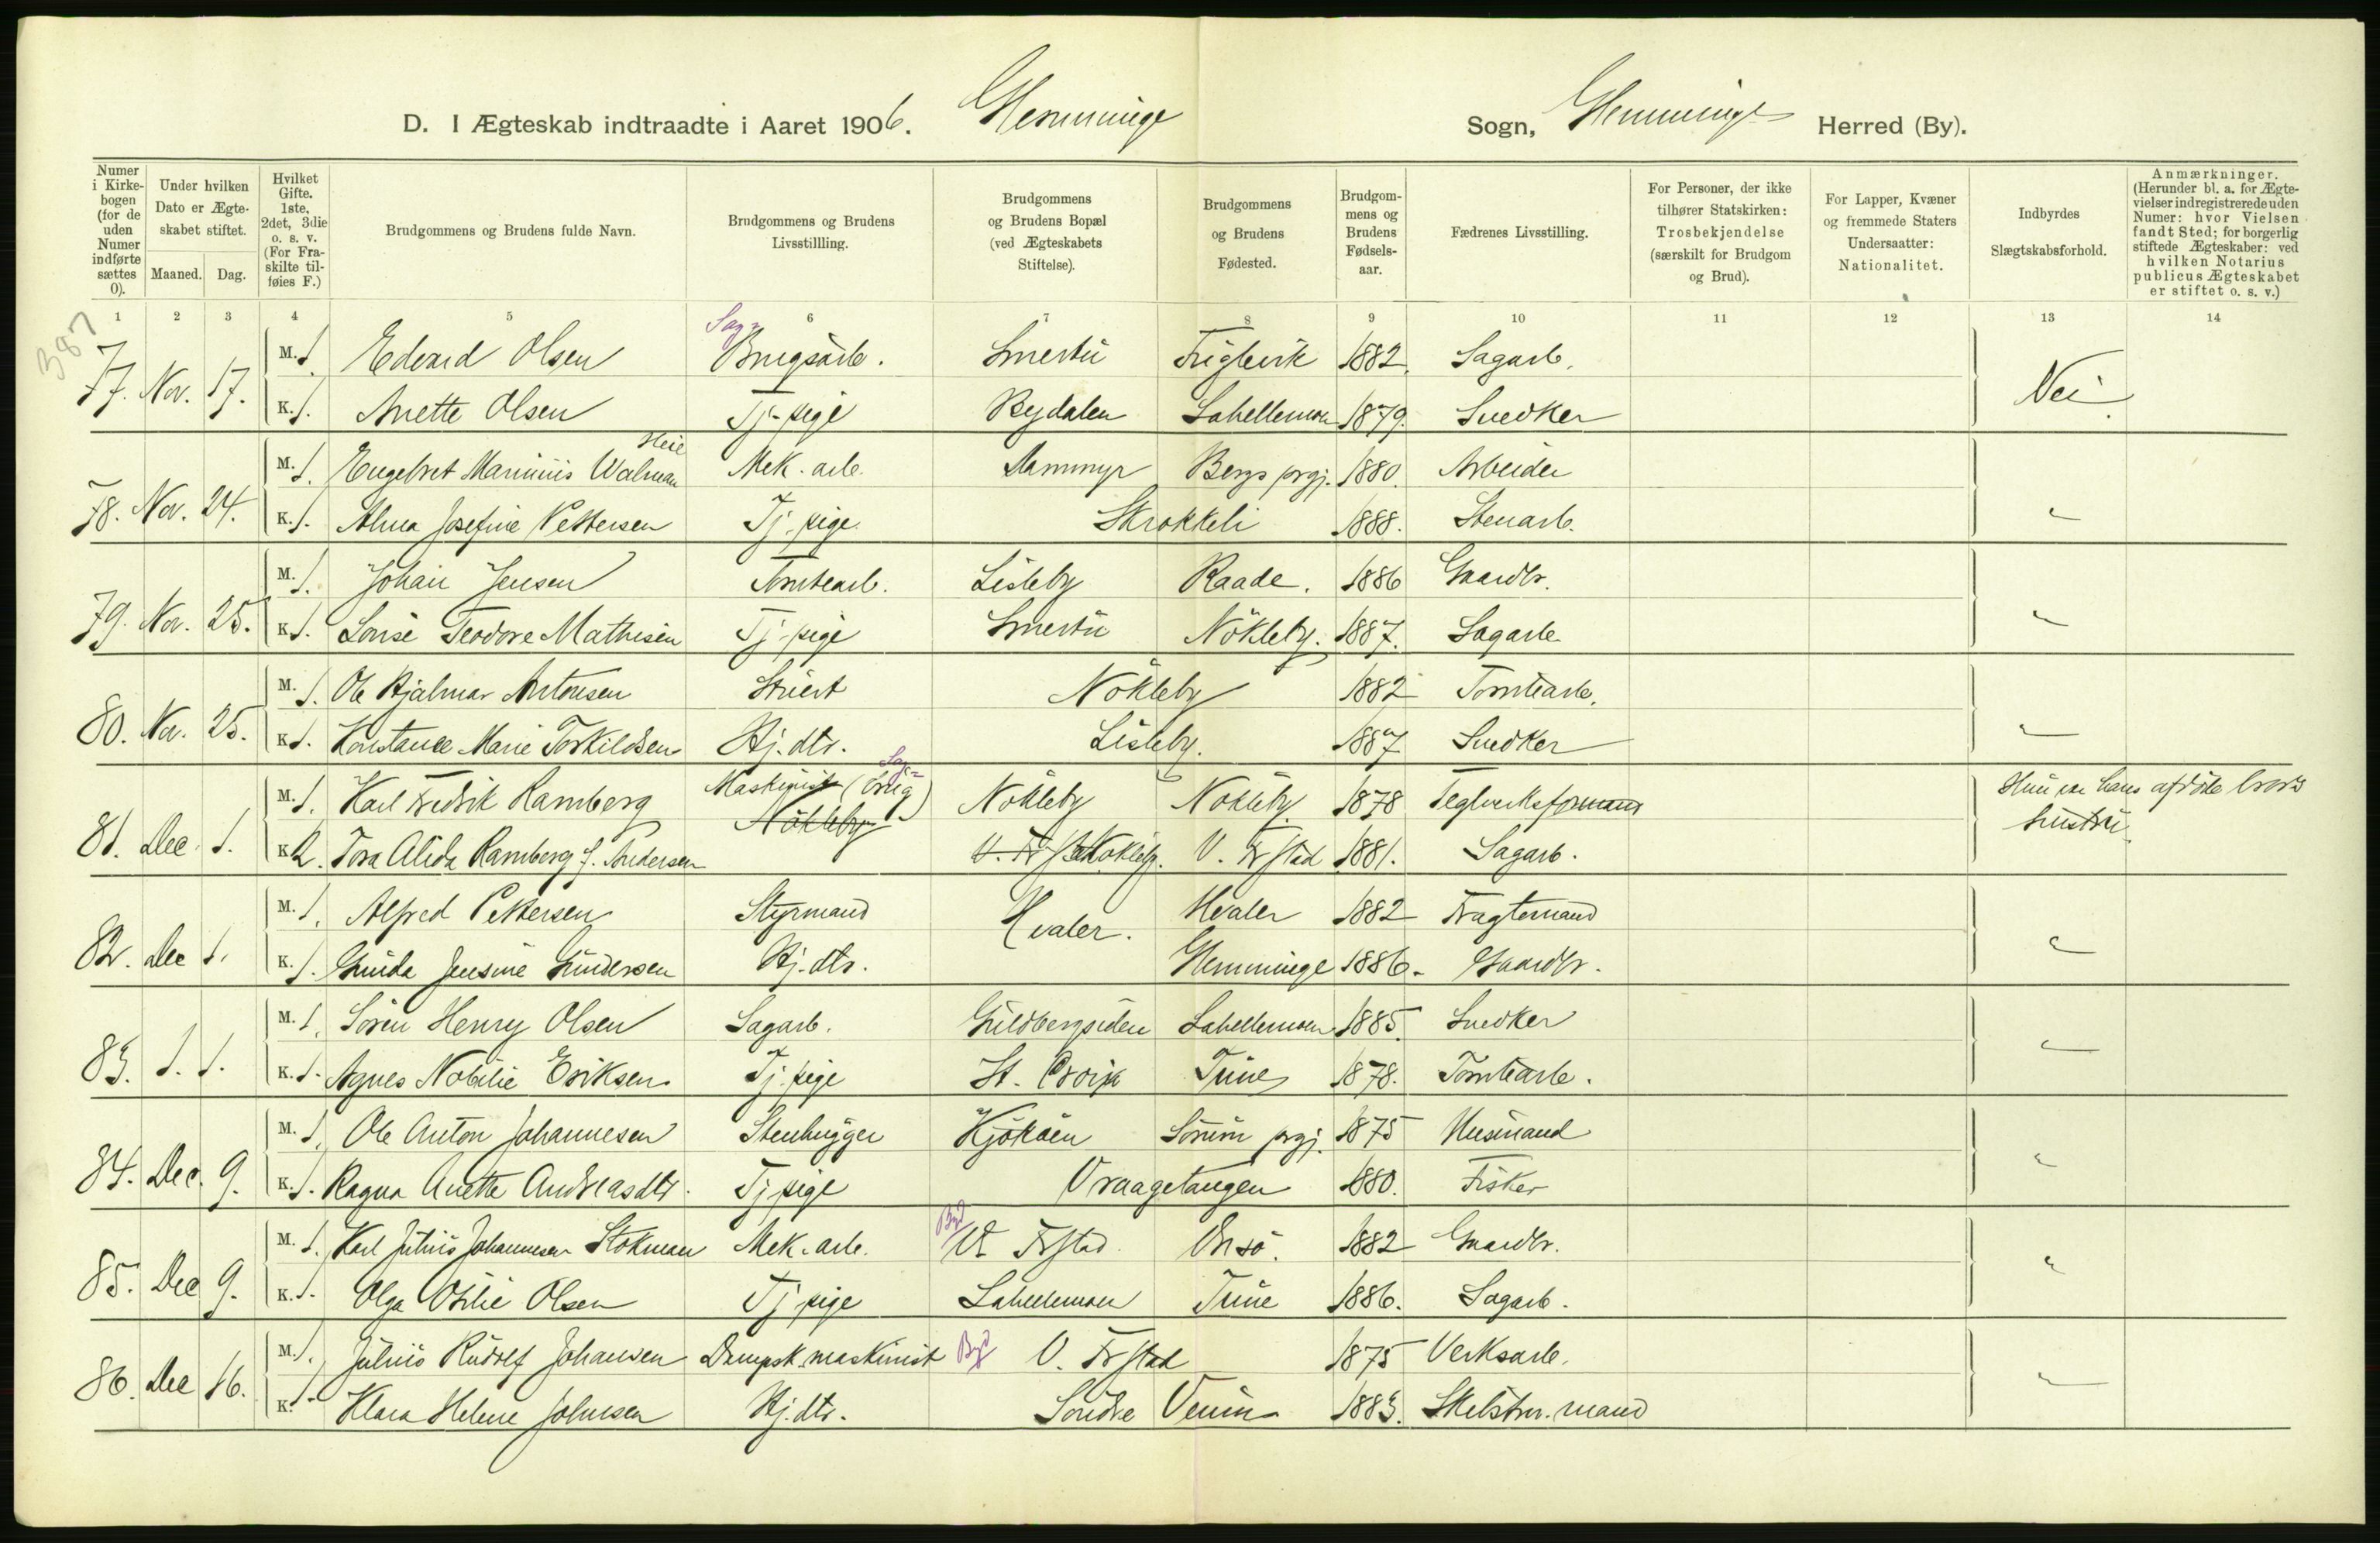 D. I Ægteskab indtraadte i Aaret 1906. Glemminge Sogn, Glemminge Herred (By).
Numer i Kirkebogen (for de uden Numer indførte sættes 0).
Under hvilken Dato er Ægteskabet stiftet.
Maaned. Dag.
Hvilket Gifte. 1ste, 2det, 3die o. s. v. (For Fraskilte tilføies F.)
Brudgommens og Brudens fulde Navn.
Brudgommens og Brudens Livsstillling.
Brudgommens og Brudens Bopæl (ved Ægteskabets Stiftelse).
Brudgommens og Brudens Fødested.
Brudgommens og Brudens Fødselsaar.
Fædrenes Livsstilling.
For Personer, der ikke tilhører Statskirken: Trosbekjendelse (særskilt for Brudgom og Brud).
For Lapper, Kvæner og fremmede Staters Undersaatter: Nationalitet.
Indbyrdes Slægtskabsforhold.
Anmærkninger. (Herunder bl. a. for Ægtevielser indregistrerede uden Numer: hvor Vielsen fandt Sted; for borgerlig stiftede Ægteskaber: ved hvilken Notarius publicus Ægteskabet er stiftet o. s. v.)
1 2 3 4 5 6 7 8 9 10 11 12 13 14
387
Sag-
77. Nov. 17. M. 1. Edvard Olsen Brugsarb. Smertu 1882. Sagarb. Nei
K. 1. Anette Olsen Tj-pige Bydalen Labellemoen 1879. Snedker
Heie
78. Nov. 24. M. 1. Engebret Marinius Walman Mek. arb. Dammyr Bergs prgj. 1880. Arbeider "
K. 1. Alma Josefine Pettersen Tj-pige Skrokkeli 1888. Stenarb.
79. Nov. 25. M. 1. Johan Jensen Tomtearb. Lisleby Raade. 1886 Gaardbr. "
K. 1. Lovise Teodore Mathisen Tj-pige Smertu Nökleby. 1887. Sagarb.
80. Nov. 25. M. 1. Ole Hjalmar Antonsen Stuert Nökleby 1882 Tomtearb. "
K. 1. Konstance Marie Torkildsen Hj. dtr. Lisleby. 1887 Snedker
Sag-
81. Dec. 1. M. 1. Karl Fredrik Ramberg Maskinist (Brug) Nökleby Nökleby Nökleby 1878 Teglverksformand Hun var hans afdöde brors hustru
K. 2. Tora Alida Ramberg f. Andersen V. Fr stad Nökleby. V. Fr stad 1881. Sagarb.
82. Dec 1. M. 1. Alfred Pettersen Styrmand Hvaler. Hvaler 1882 Fragtemand "
K. 1. Gunda Jensine Gundersen Hj. dtr. Glemminge 1886. Gaardbr.
83. 1. 1. M. 1. Sören Henry Olsen Sagarb. Guldbergsiden Labellemoen 1885. Snedker "
K. 1. Agnes Nobilie Eriksen Tj-pige St. Croix Tune 1878. Tomtearb.
84. Dec. 9. M. 1. Ole Anton Johannesen Stenhugger Kjököen Sörum prgj. 1875 Husmand "
K. 1. Ragna Anette Andreasdtr. Tj pige Vraagetangen 1880. Fisker
Byd
85. Dec 9. M. 1. Karl Julius Johannesen Stokman Mek. arb. V. Fr stad Onsö. 1882 Gaardbr. "
K. 1. Olga Otilie Olsen Tj-pige Labellemoen Tune 1886. Sagarb.
86. Dec 16. M. 1. Julius Rudolf Johansen Dampsk. maskinist Byd V. Fr stad 1875 Verksarb. "
K. 1. Klara Helene Johnsen Hj. dtr. Söndre Venim 1883. mand